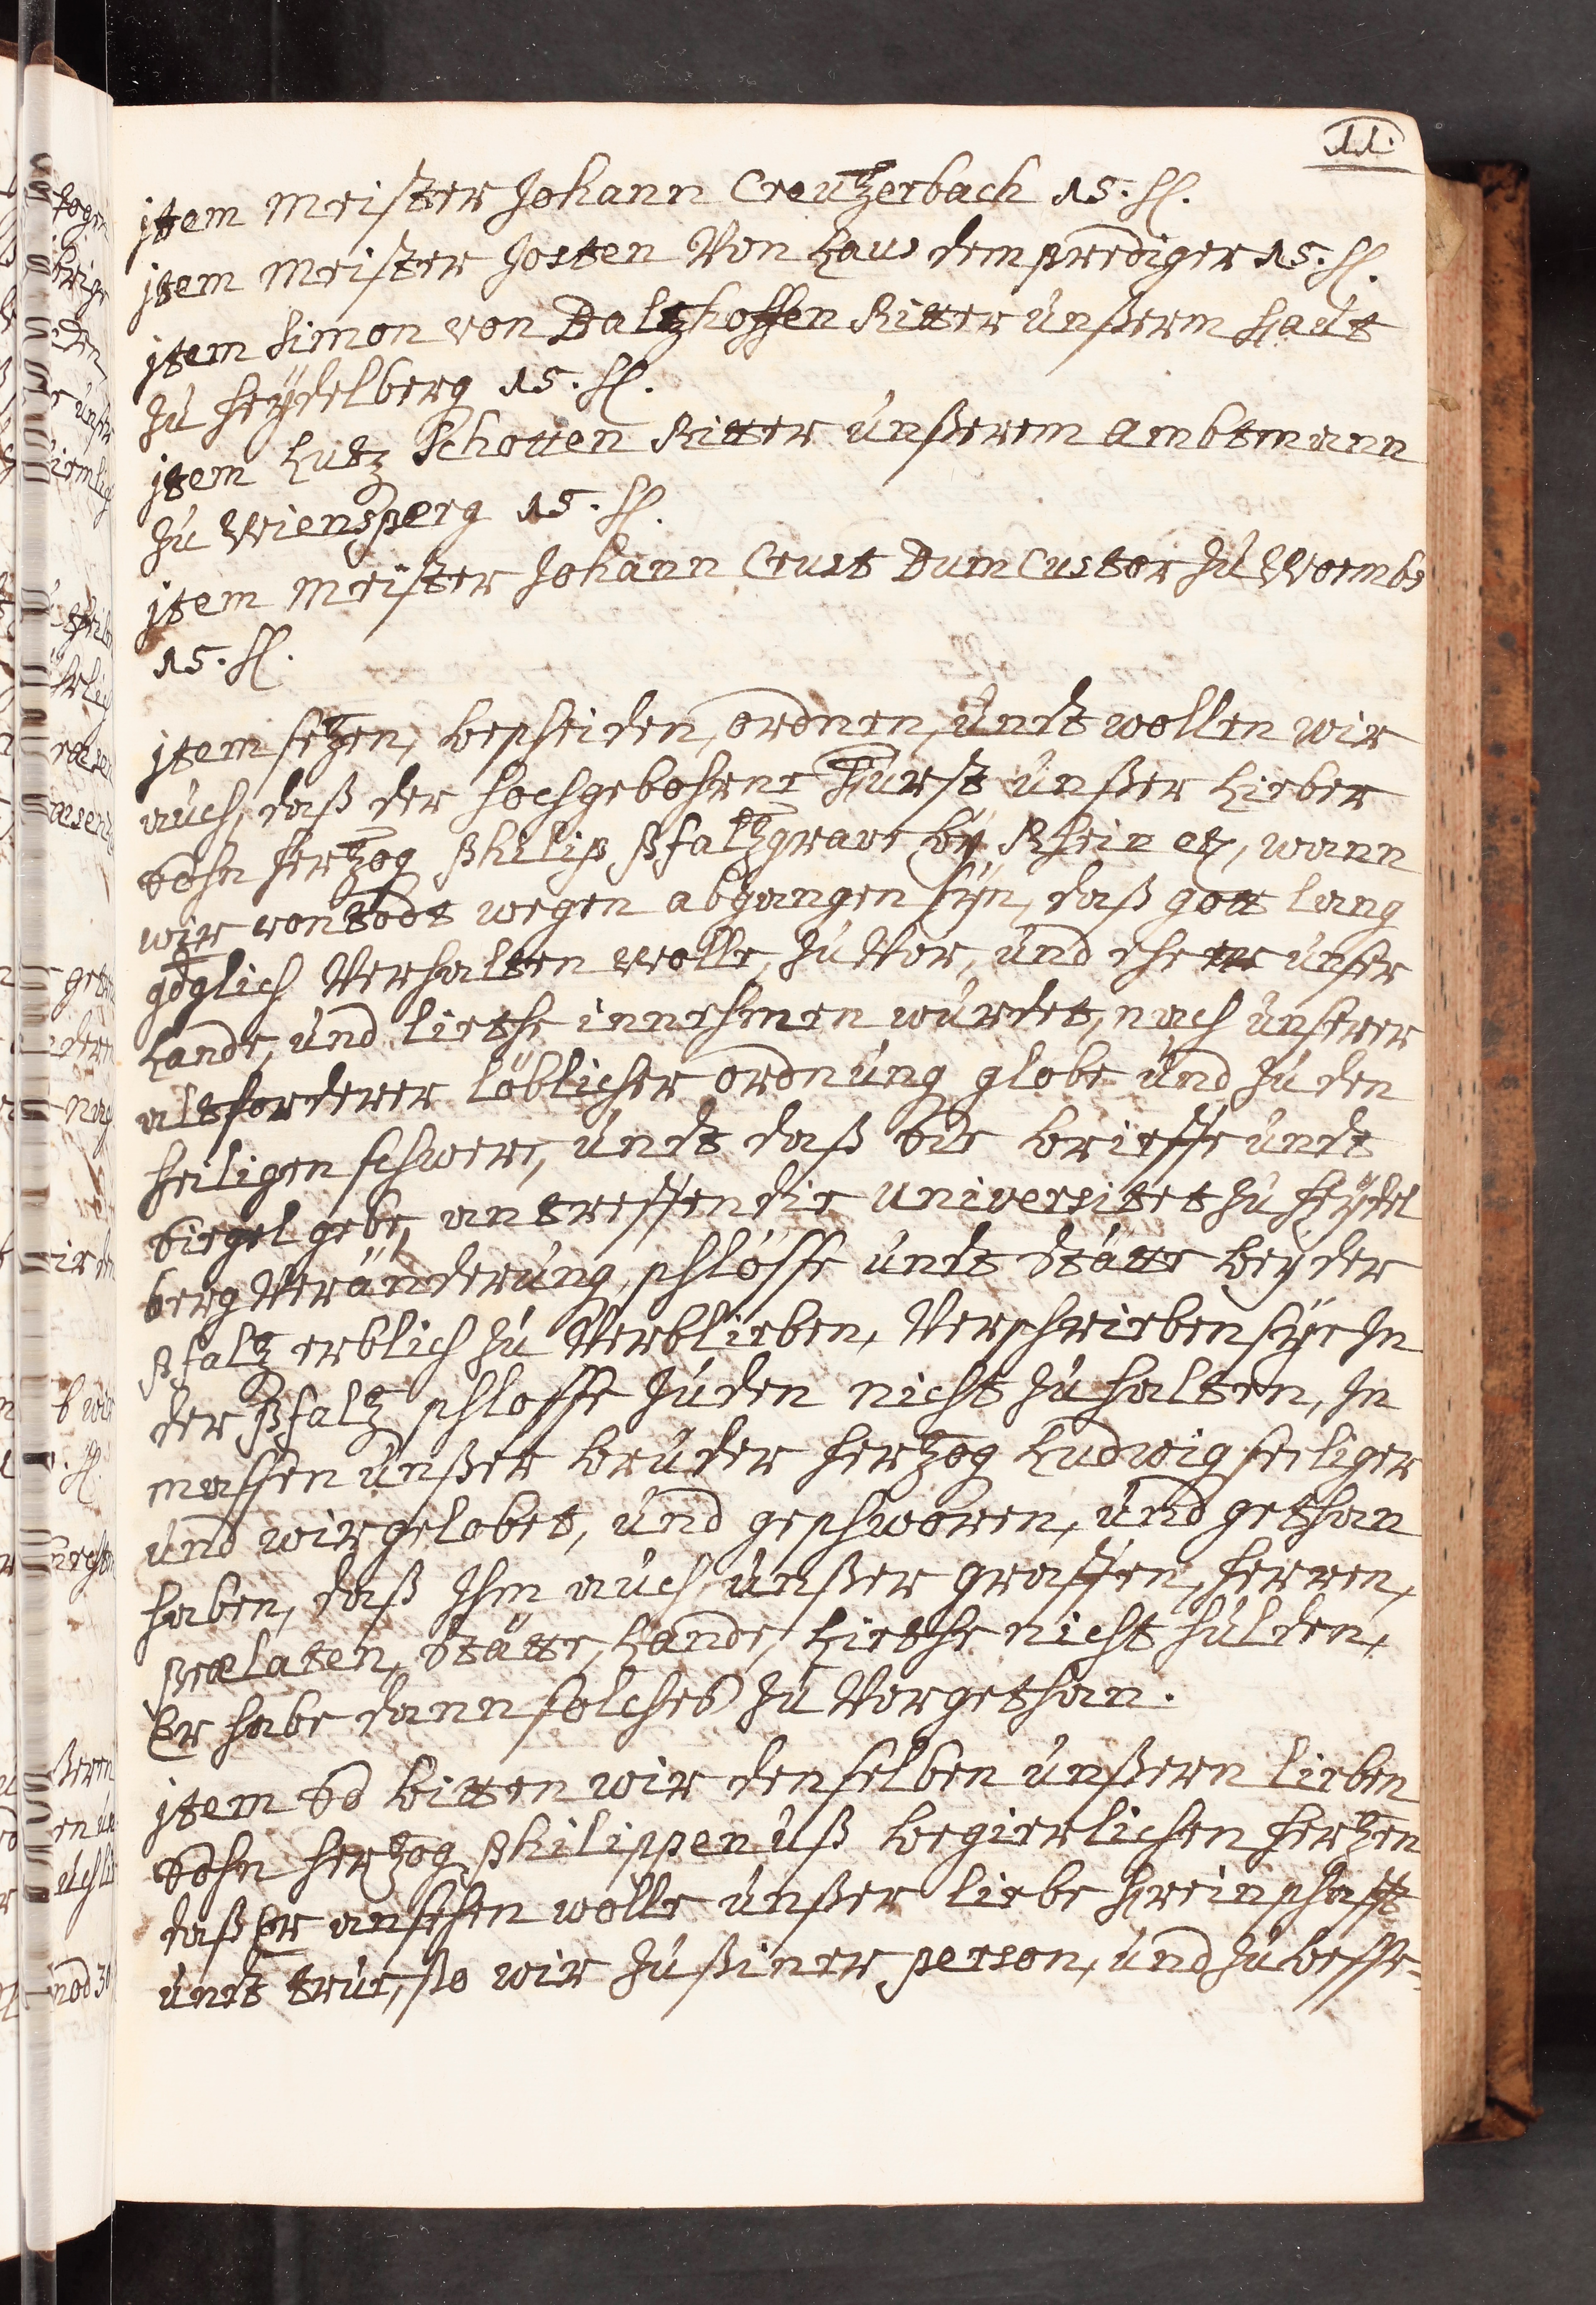 11.
jtem Meister Johann Creutzerbach 15. fl.
jtem Meister Josten Von Laus dem prediger 15. fl.
jtem Simon von Baltzhoffen Ritter unßerm haut
zu Heÿdelberg 15. fl.
jtem Lutz Schotten Ritter unßerem ambtmann
zu Wiensperg 15. fl.
jtem Meister Johann Crust Dum Custor zu Wormbs
15. fl.
jtem setzen, bescheiden, ordnen, undt wollen wir
auch, daß der hochgebohrne Furst unßer Lieber
Sohn Hertzog Philip Pfaltzgrave bÿ Rhein etc, wann
wir von todt wegen abgangen sÿn, daß gott lang
göglich Verhalten wolle, zu Vor, und ehe er unser
Lande, und liethe innehmen wurdet, nach unserer
altforderer löblicher ordnung globe und zu den
heiligen schwere, undt daß Sie brieffe undt
Siegel gebe, antreffen die Universitet zu Heÿdel
berg Veränderung, schlösse undt Stätte beÿ der
Pfaltz erblich zu Verblieben, Verschrieben sÿe In
der Pfaltz schlosse Juden nicht zu halten, In
massen unßer bruder Hertzog Ludwig seiliger
und wir gelobet, und geschworen, und gethan
haben, daß Ihm auch unßer graffen, herren,
prælaten, Stätte, Lande, Liethe nicht hulden,
Er habe dann solches zu Vor gethan.
jtem So bitten wir denselben unßern lieben
Sohn Hertzog Philippen uß begierlichen hertzen
daß Er ansehen wolle unßer liebe freinschafft
undt true, ßo wir zu ßiner person, und zu besse-